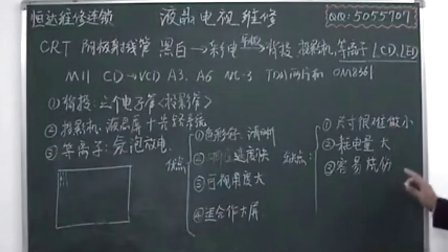 恒达维修连锁 液晶电视维修 QQ:5055707
CRT 阴极射线管 黑白→彩电→背投 投影机 等离子 LCD.LED
M11 CD→VCD A3. A6 NC-3 TDA OM8361
①背投:三个电子管<投影管>
②投影机:液晶屏+光学系统
③等离子:气泡放电.
优点:
①色彩好、清晰
②速度快
③可视角度大
④适合作大屏
缺点:
①尺寸很难做小
②耗电量大
③容易烧伤